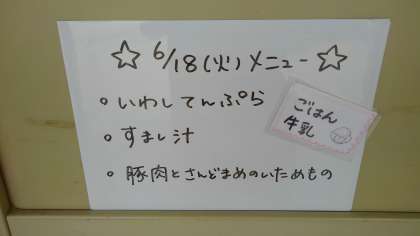 ☆ 6/18(火)メニュー ☆
○ いわしてんぷら
○ すまし汁
○ 豚肉とさんどまめのいためもの
ごはん
牛乳